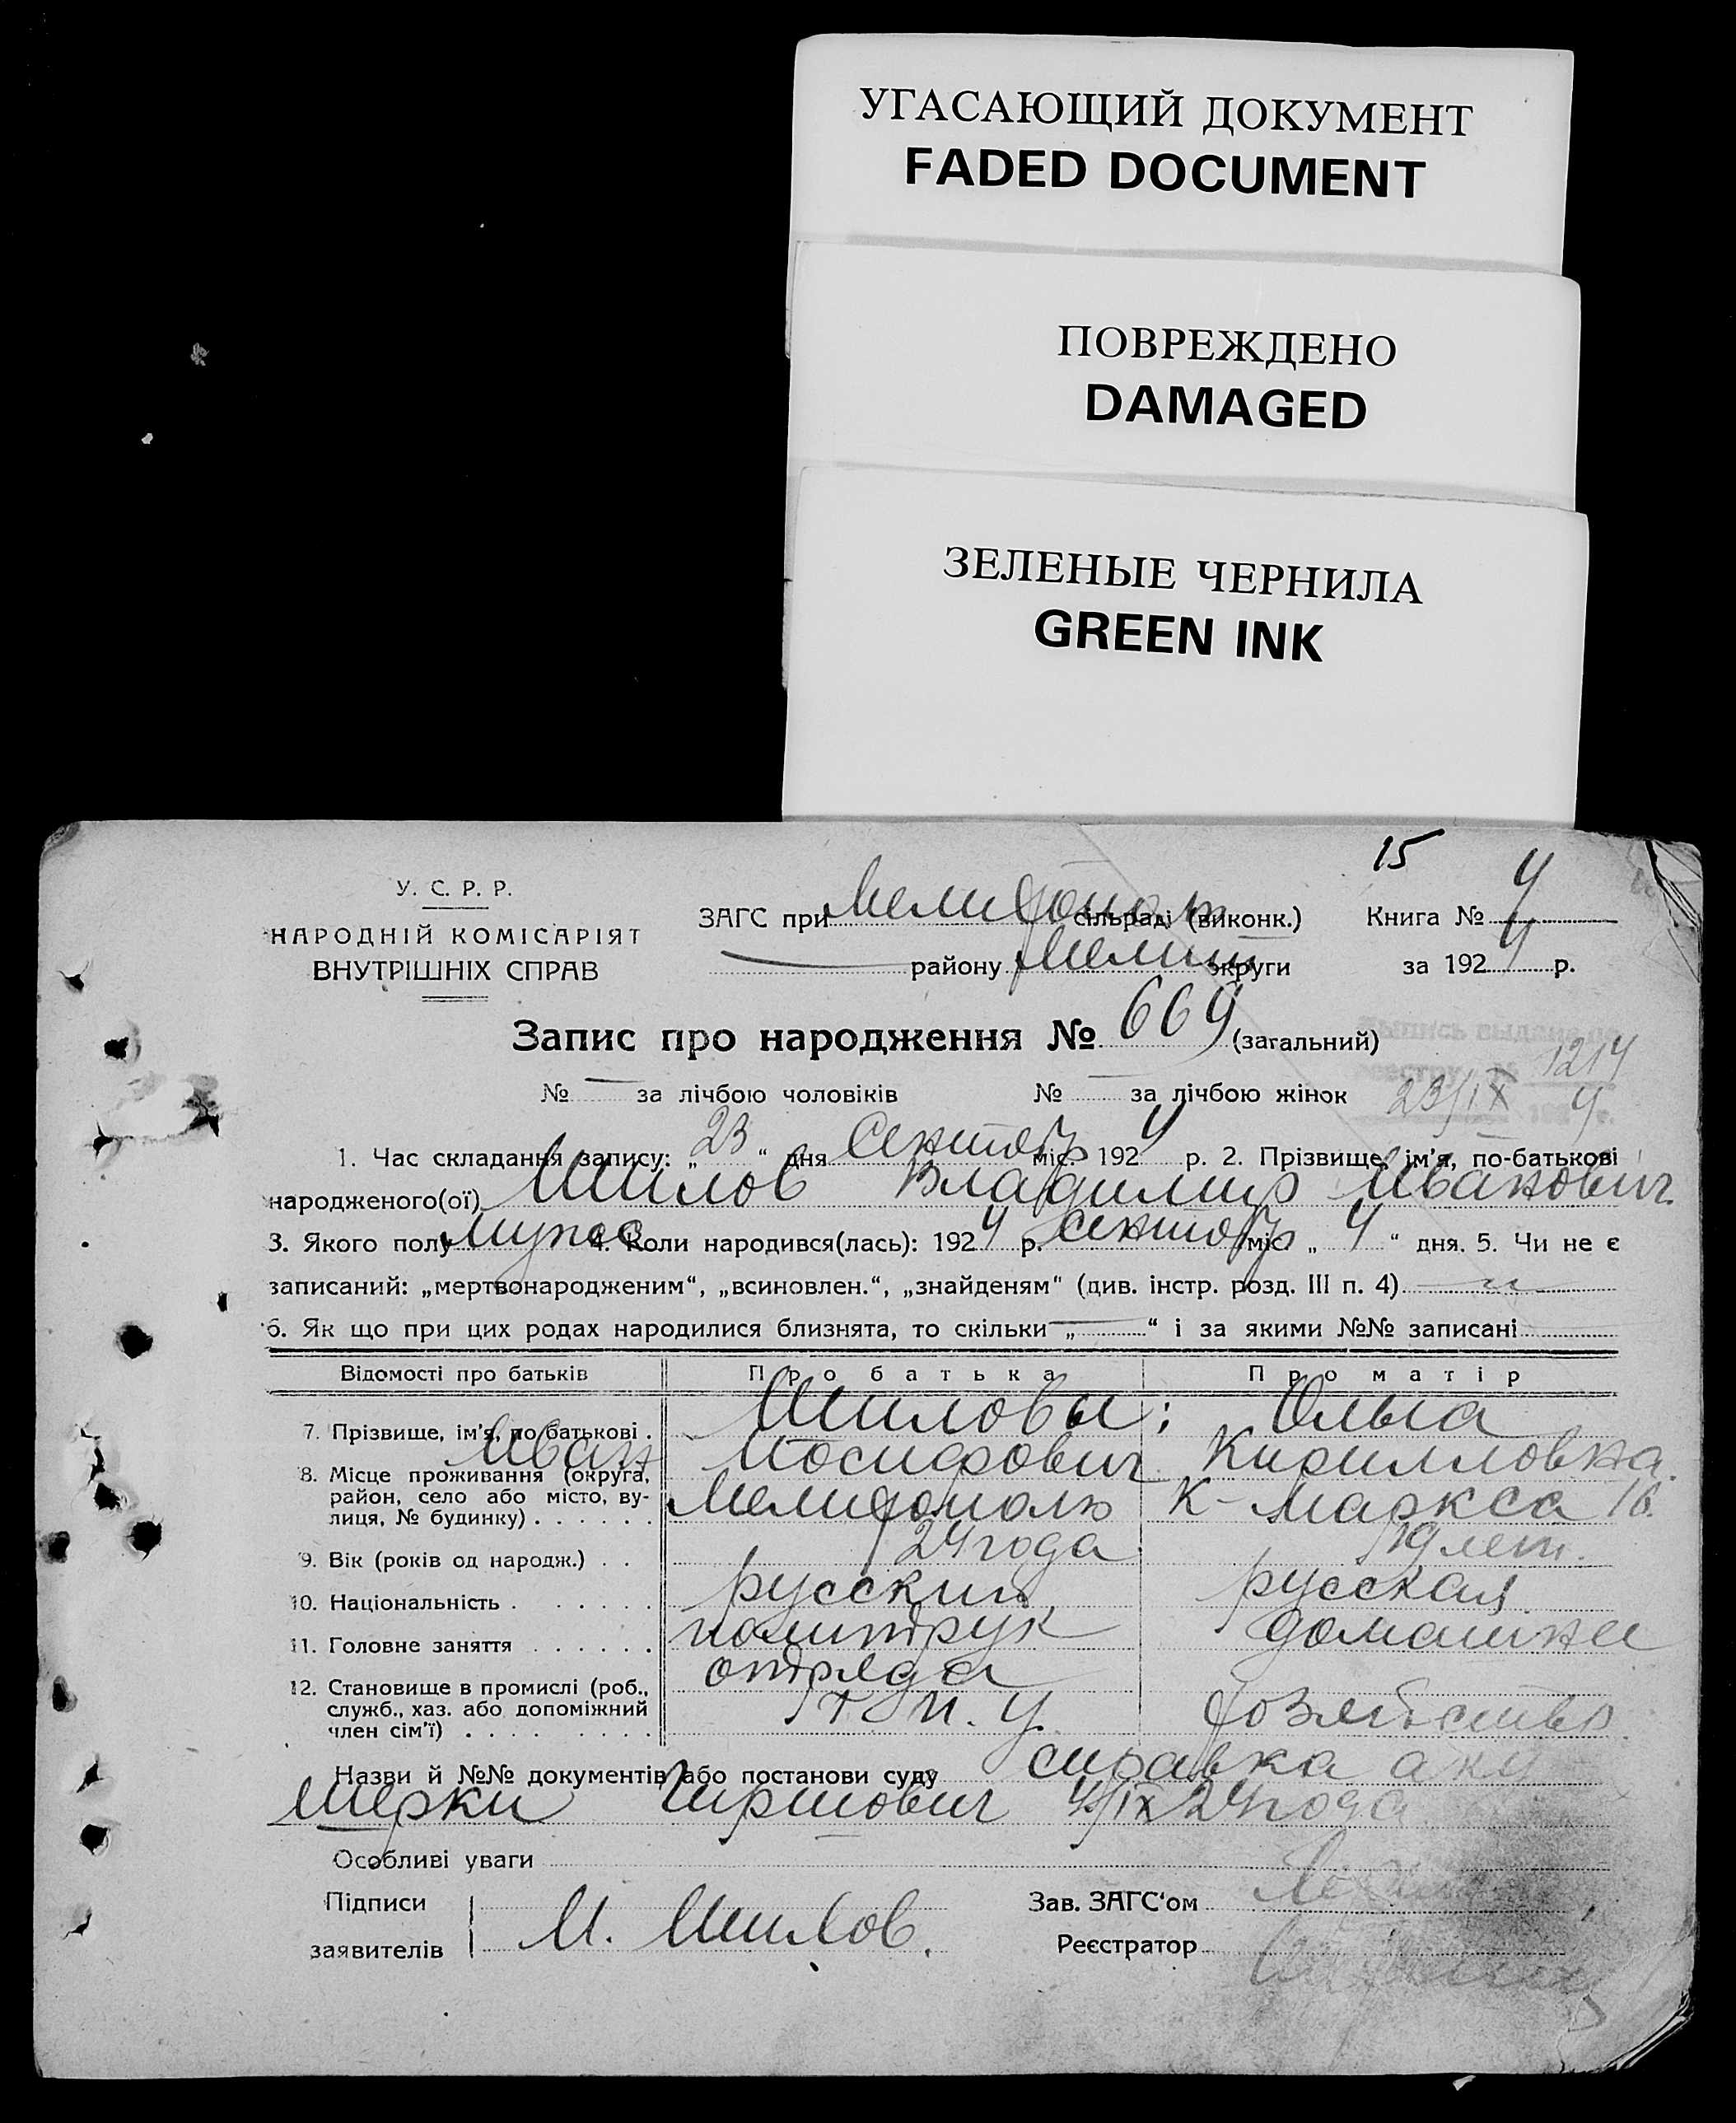 УГАСАЮЩИЙ ДОКУМЕНТ
FADED DOCUMENT
ПОВРЕЖДЕНО
DAMAGED
ЗЕЛЕНЫЕ ЧЕРНИЛА
GREEN INK
15
У. С. Р. Р.
НАРОДНІЙ КОМІСАРІЯТ
ВНУТРІШНІХ СПРАВ
ЗАГС при Мелитопол сільраді (виконк.) Книга № 4
— району Мелит округи за 1924 р.
Запис про народження № 669 (загальний)
Выпись выдана по
реестру № 1214
№ — за лічбою чоловіків № — за лічбою жінок 23/IX 1924 г.
1. Час складання запису: „23“ дня Сентябр міс. 1924 р. 2. Прізвище, ім’я, по-батькові
народженого(ої) Шилов Владимир Иванович
3. Якого полу мужс 4. Коли народився(лась): 1924 р. сентябр міс. „4“ дня. 5. Чи не є
записаний: „мертвонародженим“, „всиновлен.“, „знайденям“ (див. інстр. розд. III п. 4)
6. Як що при цих родах народилися близнята, то скільки „—“ і за якими №№ записані
Відомості про батьків Про батька Про матір
7. Прізвище, ім’я, по-батькові . Шиловы; Ольга
Иван Иосифович Кирилловна
8. Місце проживання (округа,
район, село або місто, ву-
лиця, № будинку) . . . . . . Мелитополь К-Маркса 16
9. Вік (років од народж.) . . 24 года 19 лет.
10. Національність . . . . . . русский русская
11. Головне заняття . . . . . . политрук домашнее
отряда
12. Становище в промислі (роб.,
служб., хаз. або допоміжний
член сім’ї) . . . . . . . Г.П.У. хозяйство
Назви й №№ документів або постанови суду справка аку
шерки Гиршович 4/IX 24 года
Особливі уваги
Підписи
заявителів И. Шилов.
Зав. ЗАГС‘ом
Реєстратор